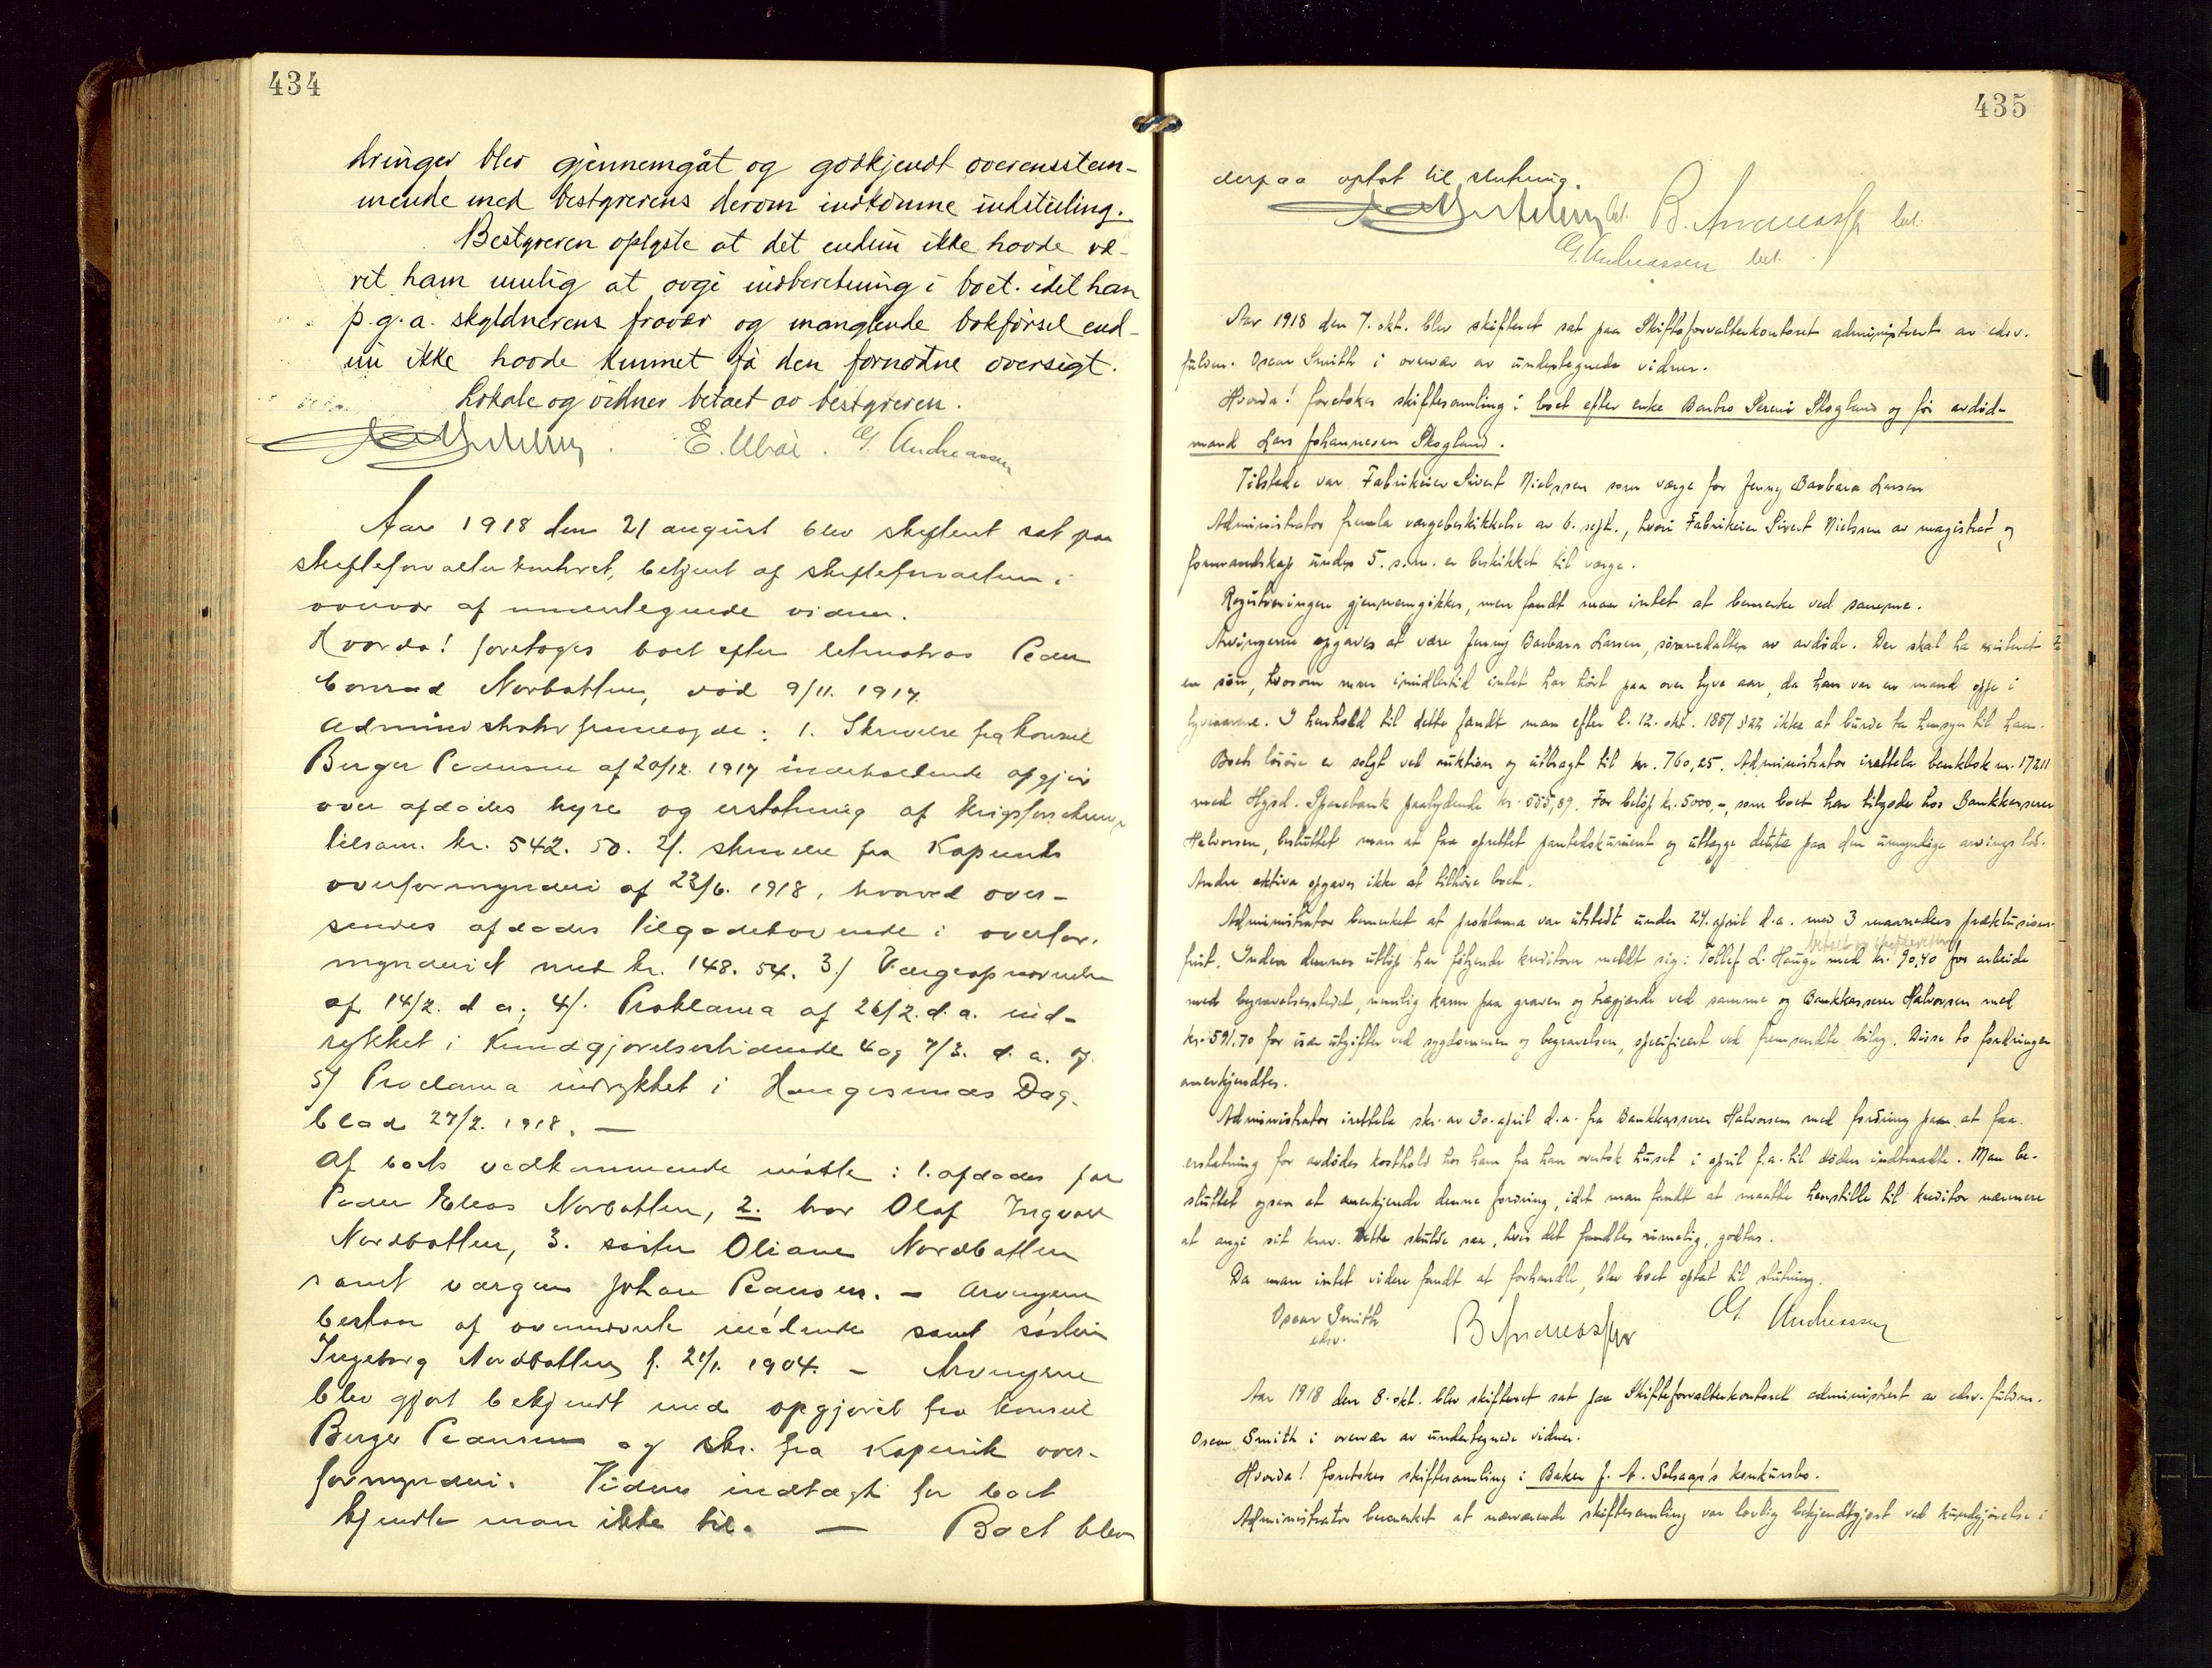 434
dringer blev gjennemgåt og godkjendt overensstem-
mende med bestyrerens derom indkomne indstilling.
Bestyreren oplyste at det endnu ikke havde væ-
ret ham mulig at avgi indberetning i boet. idet han
p.g.a. skyldnerens fravær og manglende bokførsel end-
nu ikke havde kunnet få den fornødne oversigt.
Lokale og vidner betalt av bestyreren.
E. Ubøe. G. Andreassen
Aar 1918 den 21 august blev skifteret sat paa
skifteforvalterkontoret, betjent af skifteforvalteren i
overvær af undertegnede vidner.
Hvorda! foretoges boet efter letmatros Peder
Conrad Norbotten, död 9/11. 1917.
Administrator fremlagde: 1. Skrivelse fra Konsul
Berger Pedersen af 20/12. 1917 indeholdende opgjör
over afdödes hyre og erstatning af Krigsforsikring
tilsam. kr. 542.50. 2/. skrivelse fra Kopervik
overformynderi af 22/6. 1918, hvorved over-
sendes afdödes tilgodehavende i overfor-
mynderiet med kr. 148.54. 3/ Værgeopnævnelse
af 14/2. d. a; 4/. Proklama af 26/2. d. a. ind-
rykket i Kundgjørelsestidende 4 og 7/3. d. a. og
5/ Proclama indrykket i Haugesunds Dag-
blad 27/2. 1918. —
Af boets vedkommende mödte: 1. afdödes far
Peder Elias Norbotten, 2. bror Olaf Ingvald
Nordbotten, 3. söster Oliane Nordbotten
samtværgen Johan Pedersen. — Arvingerne
bestaar af ovennævnte mödende samt sösteren
Ingeborg Nordbotten f. 21/1. 1904. — Arvingerne
blev gjort bekjendt med opgjöret fra konsul
Berger Pedersen og skr. fra Kopervik over-
formynderi. Videre indtægt for boet
kjendte man ikke til. — Boet blev
435
derpaa optat til slutning.
bet. B. Andreassen bet.
G. Andreassen bet.
Aar 1918 den 7. okt. blev skifteret sat paa Skifteforvalterkontoret administrert av edsv.
fuldm. Oscar Smith i overvær av undertegnede vidner.
Hvorda! foretokes skiftesamling i boet efter enke Barbro Serine Skogland og før avdöd-
mand Lars Johannesen Skogland.
Tilstede var Fabrikeier Sivert Nielssen som værge for Jenny Barbara Larsen
Administrator fremla værgebeskikkelse av 6. sept., hvori Fabrikeier Sivert Nielssen av magistrat og
formandskap under 5. s.m. er beskikket til værge.
Registreringen gjennemgikkes, men fandt man intet at bemerke ved samme.
Arvingerne opgaves at være Jenny Barbara Larsen, sönnedatter av avdöde. Der skal ha existeret
en sön, hvorom man imidlertid intet har hört paa over tyve aar, da han var en mand oppe i
tyveaarene. I henhold til dette fandt man efter l. 12. okt. 1857 § 22 ikke at burde ta hensyn til ham.
Boets lösöre er solgt ved auktion og utbragt til kr. 760,25. Administrator irettela bankbok nr. 17211
med Hgsd. Sparebank paalydende kr. 555,89. For belöp kr. 5000,-, som boet har tilgode hos Bankkasserer
Halvorsen, besluttet man at faa oprettet pantedokument og utlægge dette paa den umyndige arvings lod.
Andre aktiva opgaves ikke at tilhöre boet.
Administrator bemerket at proklama var utstedt under 24. april d.a. med 3 maaneders præklusions-
frist. Inden dennes utlöp har fölgende kreditorer meldt sig: Tollef L. Hauge med kr. 90,40 for arbeide
med begravelsesstedet, nemlig karm paa graven og trægjærde ved samme og Bankkasserer Halvorsen med
kr. 591.70 for især utgifter ved sygdommen og begravelsen, specificert ved fremsendte bilag. Disse to fordringer
anerkjendtes.
Administrator irettela skr. av 30. april d.a. fra Bankkasserer Halvorsen med fordring paa at faa
erstatning for avdödes kosthold hos ham fra han overtok huset i april f.a. til döden indtraadte. Man be-
sluttet ogsaa at anerkjende denne fordring, idet man fandt at maatte henstille til kreditor nærmere
at angi sit krav. Dette skulde saa, hvis det fandtes rimelig, godtas.
Da man intet videre fandt at forhandle, blev boet optat til slutning.
Oscar Smith B Andreassen G. Andreassen
edsv.
Aar 1918 den 8. okt. blev skifteret sat paa Skifteforvalterkontoret administrert av edsv. fuldm.
Oscar Smith i overvær av undertegnede vidner.
Hvorda! foretokes skiftesamling i Baker J. A. Schaap's konkursbo.
Administrator bemerket at nærværende skiftesamling var lovlig bekjendtgjort ved kundgjørelse i